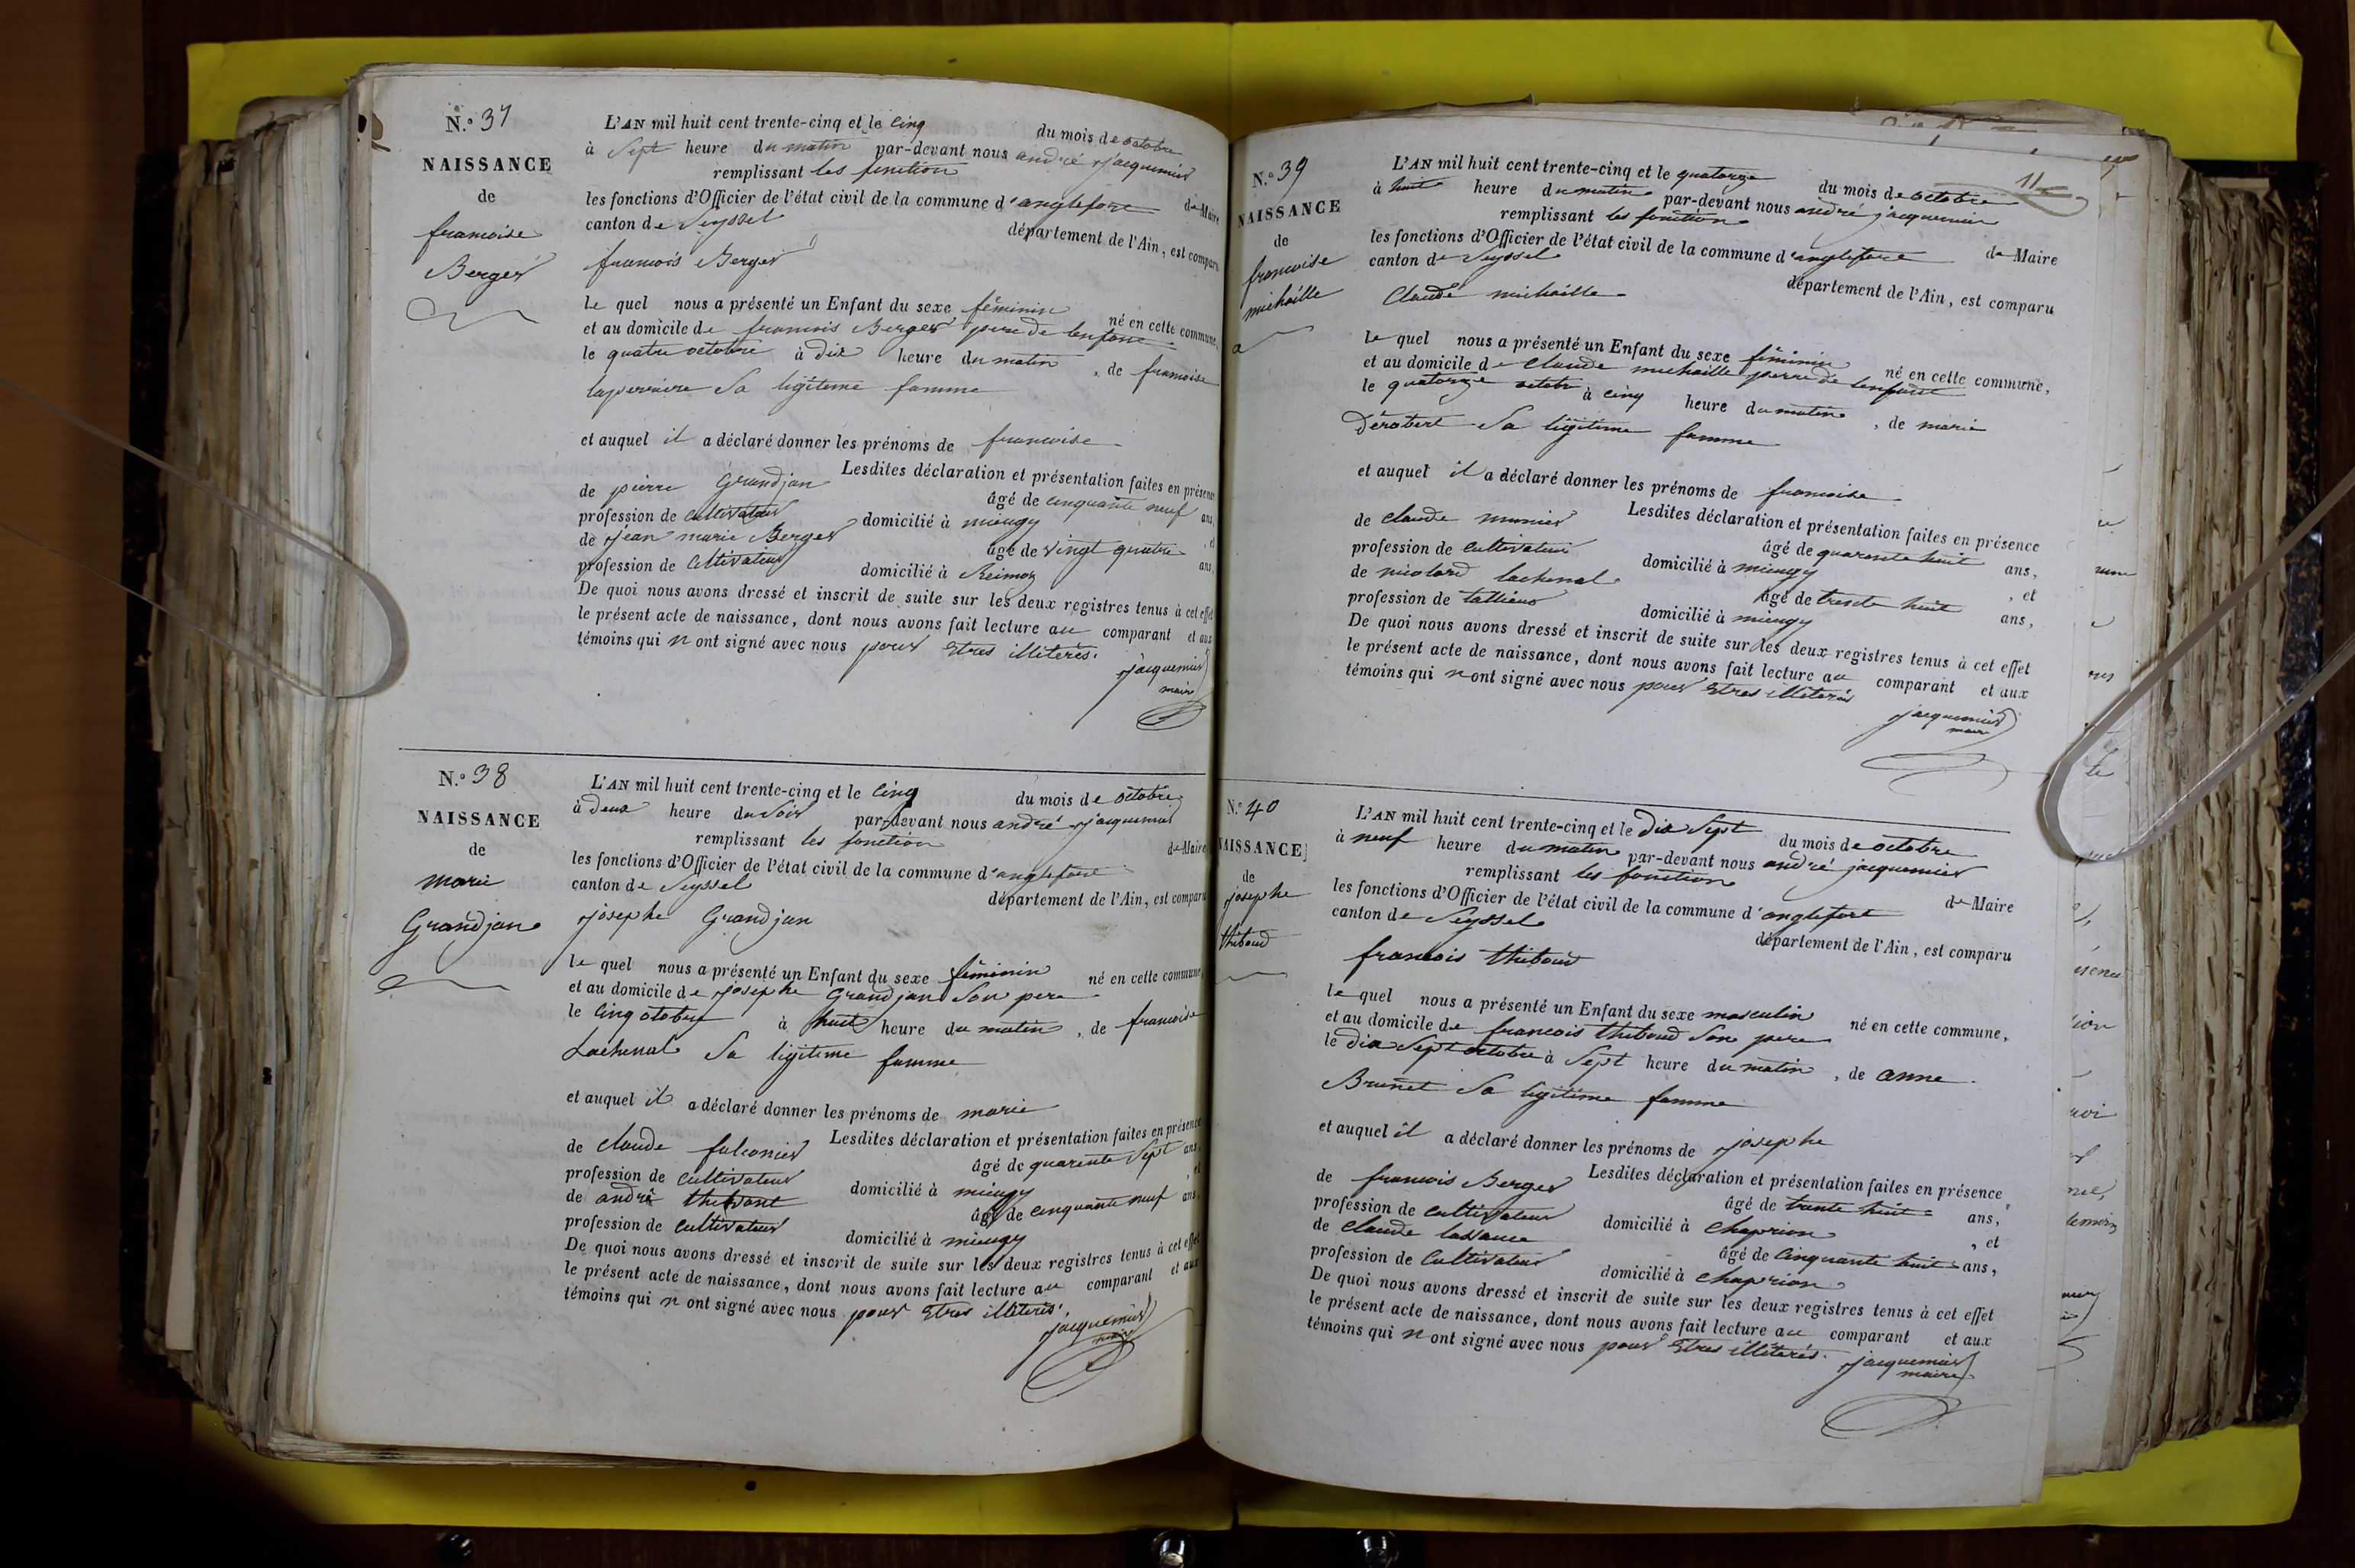 N.o 37
NAISSANCE
de
francoise
Berger
L'AN mil huit cent trente-cinq et le cinq du mois de octobre
à Sept heure du matin par-devant nous andré jacquemier
remplissant les fonction de Maire
les fonctions d'Officier de l'état civil de la commune d'anglefort
canton de Seyssel département de l'Ain, est comparu
francois Berger
le quel nous a présenté un Enfant du sexe féminin né en cette commune,
et au domicile de francois Berger pere de lenfant
le quatre octobre à dix heure du matin, de francoise
laperriere Sa ligitime famme
et auquel il a déclaré donner les prénoms de francoise
Lesdites déclaration et présentation faites en présence
de pierre Grandjan âgé de cinquante neuf ans,
profession de cultivateur domicilié à mieugy, et
de jean marie Berger âgé de vingt quatre ans,
profession de Celtivateur domicilié à
De quoi nous avons dressé et inscrit de suite sur les deux registres tenus à cet effet
le présent acte de naissance, dont nous avons fait lecture au comparant et aux
témoins qui n ont signé avec nous pour Etres illiterés.
jacquemier
maire
N.o 38
NAISSANCE
de
marie
Grandjan
L'AN mil huit cent trente-cinq et le cinq du mois de octobre
à deux heure du Soir par-devant nous andré jacquemier
remplissant les fonction de Maire
les fonctions d'Officier de l'état civil de la commune d'anglefort
canton de Seyssel département de l'Ain, est comparu
josephe Grandjan
le quel nous a présenté un Enfant du sexe féminin né en cette commune,
et au domicile de josephe Grandjan Son pere
le cinq otobre à huit heure du matin, de francoise
Lachenal Sa ligitime famme
et auquel il a déclaré donner les prénoms de marie
Lesdites déclaration et présentation faites en présence
de claude falconier âgé de quarente Sept ans,
profession de cultivateur domicilié à mieugy, et
de andré âgé de cinquante neuf ans,
profession de cultivateur domicilié à mieugy
De quoi nous avons dressé et inscrit de suite sur les deux registres tenus à cet effet
le présent acte de naissance, dont nous avons fait lecture au comparant et aux
témoins qui n ont signé avec nous pour Etres illiterés.
jacquemier
maire
11
N.o 39
NAISSANCE
de
francoise
michaille
L'AN mil huit cent trente-cinq et le quatorze du mois de octobre
à huit heure du matin par-devant nous andré jacquemier
remplissant les fonction de Maire
les fonctions d'Officier de l'état civil de la commune d'anglefort
canton de Seyssel département de l'Ain, est comparu
Claude michaille
le quel nous a présenté un Enfant du sexe féminin né en cette commune,
et au domicile de claude michaille perre de lenfant
le quatorze octobre à cinq heure du matin, de marie
Dérobert Sa ligitime famme
et auquel il a déclaré donner les prénoms de francoise
Lesdites déclaration et présentation faites en présence
de claude munier âgé de quarente huit ans,
profession de cultivateur domicilié à mieugy, et
de nicolard lachenal âgé de trente huit ans,
profession de tallieur domicilié à mieugy
De quoi nous avons dressé et inscrit de suite sur les deux registres tenus à cet effet
le présent acte de naissance, dont nous avons fait lecture au comparant et aux
témoins qui n ont signé avec nous pour Etres illiterés
jacquemier
maire
N.o 40
NAISSANCE
de
josephe
thiboud
L'AN mil huit cent trente-cinq et le dix Sept du mois de octobre
à neuf heure du matin par-devant nous andré jacquemier
remplissant les fonction de Maire
les fonctions d'Officier de l'état civil de la commune d'anglefort
canton de Seyssel département de l'Ain, est comparu
francois thiboud
le quel nous a présenté un Enfant du sexe masculin né en cette commune,
et au domicile de francois thiboud Son pere
le dix Sept octobre à Sept heure du matin, de anne
Brunet Sa ligitime famme
et auquel il a déclaré donner les prénoms de josephe
Lesdites déclaration et présentation faites en présence
de francois Berger âgé de trante huit ans,
profession de cultivateur domicilié à chaprion, et
de claude lassauce âgé de cinquante huit ans,
profession de Cultivateur domicilié à chaprion
De quoi nous avons dressé et inscrit de suite sur les deux registres tenus à cet effet
le présent acte de naissance, dont nous avons fait lecture au comparant et aux
témoins qui n ont signé avec nous pour Etres illiterés.
jacquemier
maire